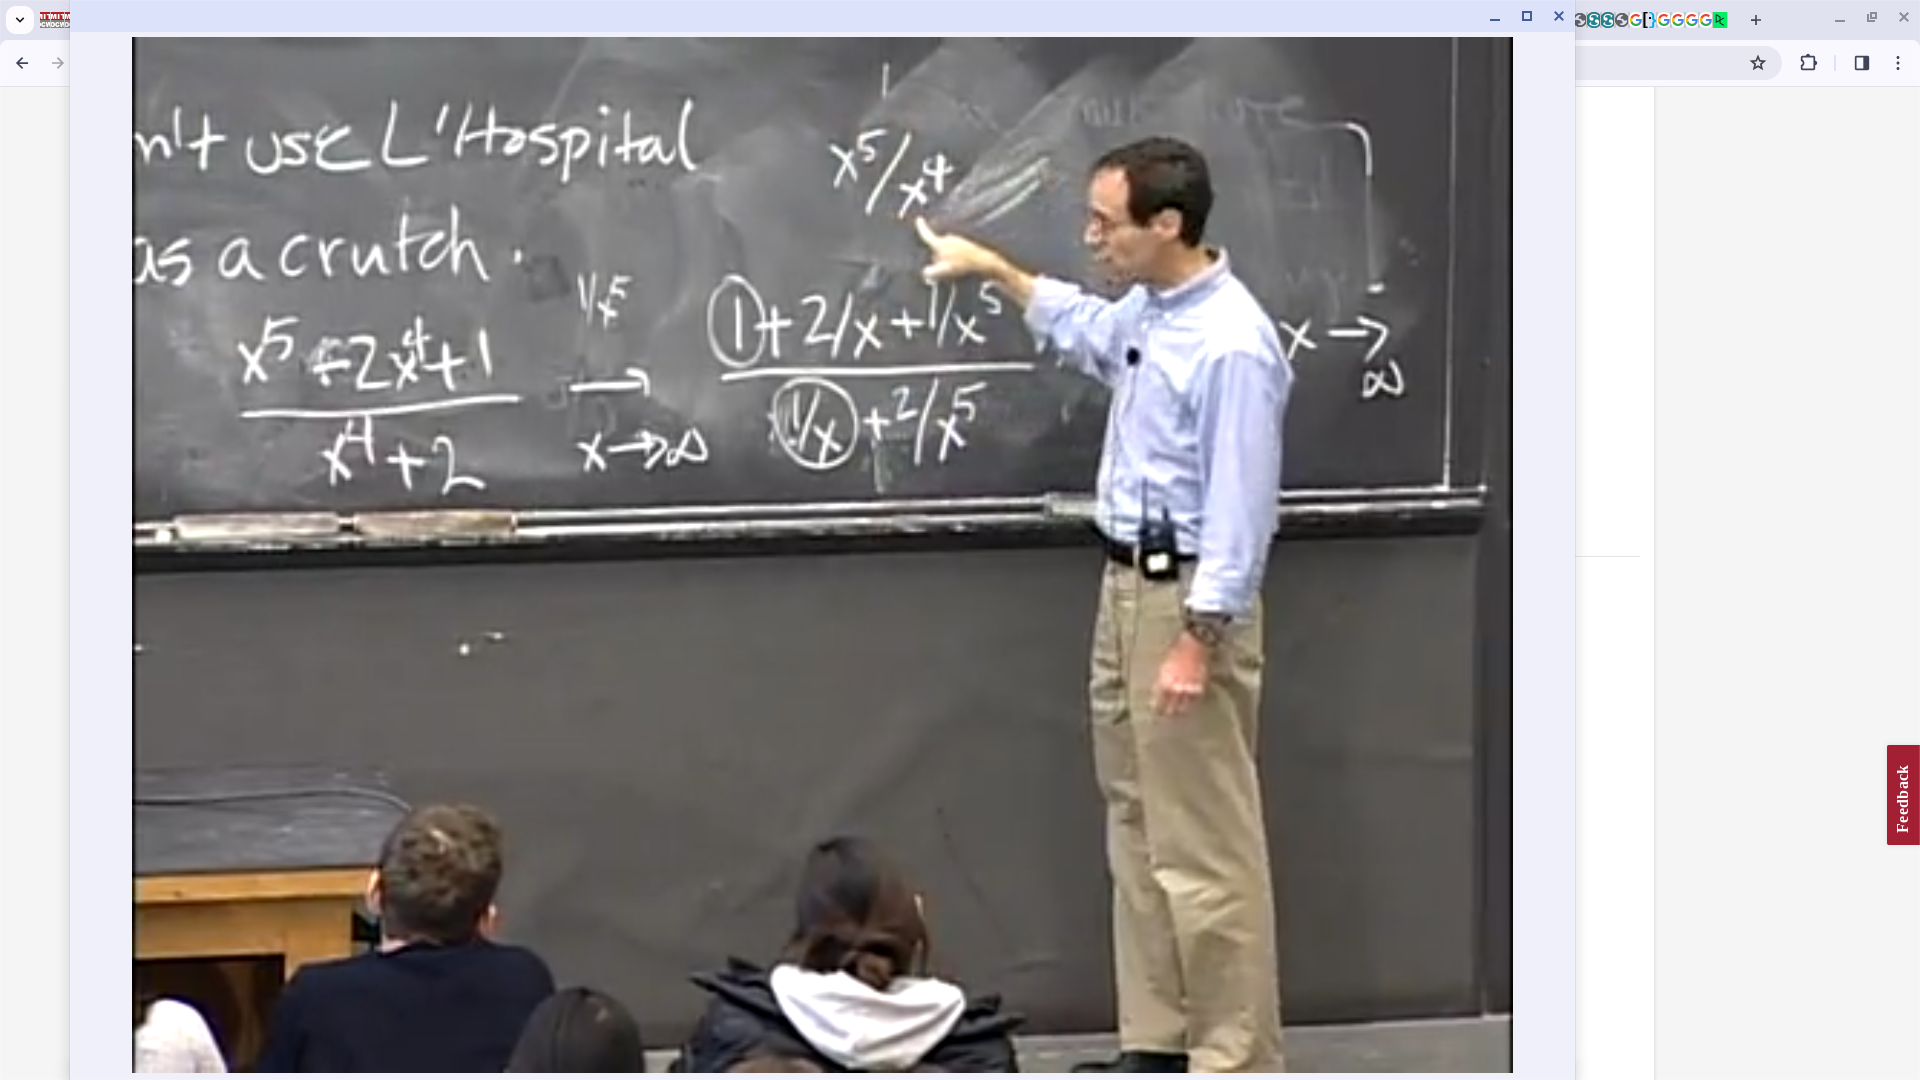 n't use L'Hospital
as a crutch.
x⁵/x⁴
1/x⁵
x⁵ + 2x⁴ + 1
x⁴ + 2
→
x → ∞
1 + 2/x + 1/x⁵
1/x + 2/x⁵
x →
∞
Feedback